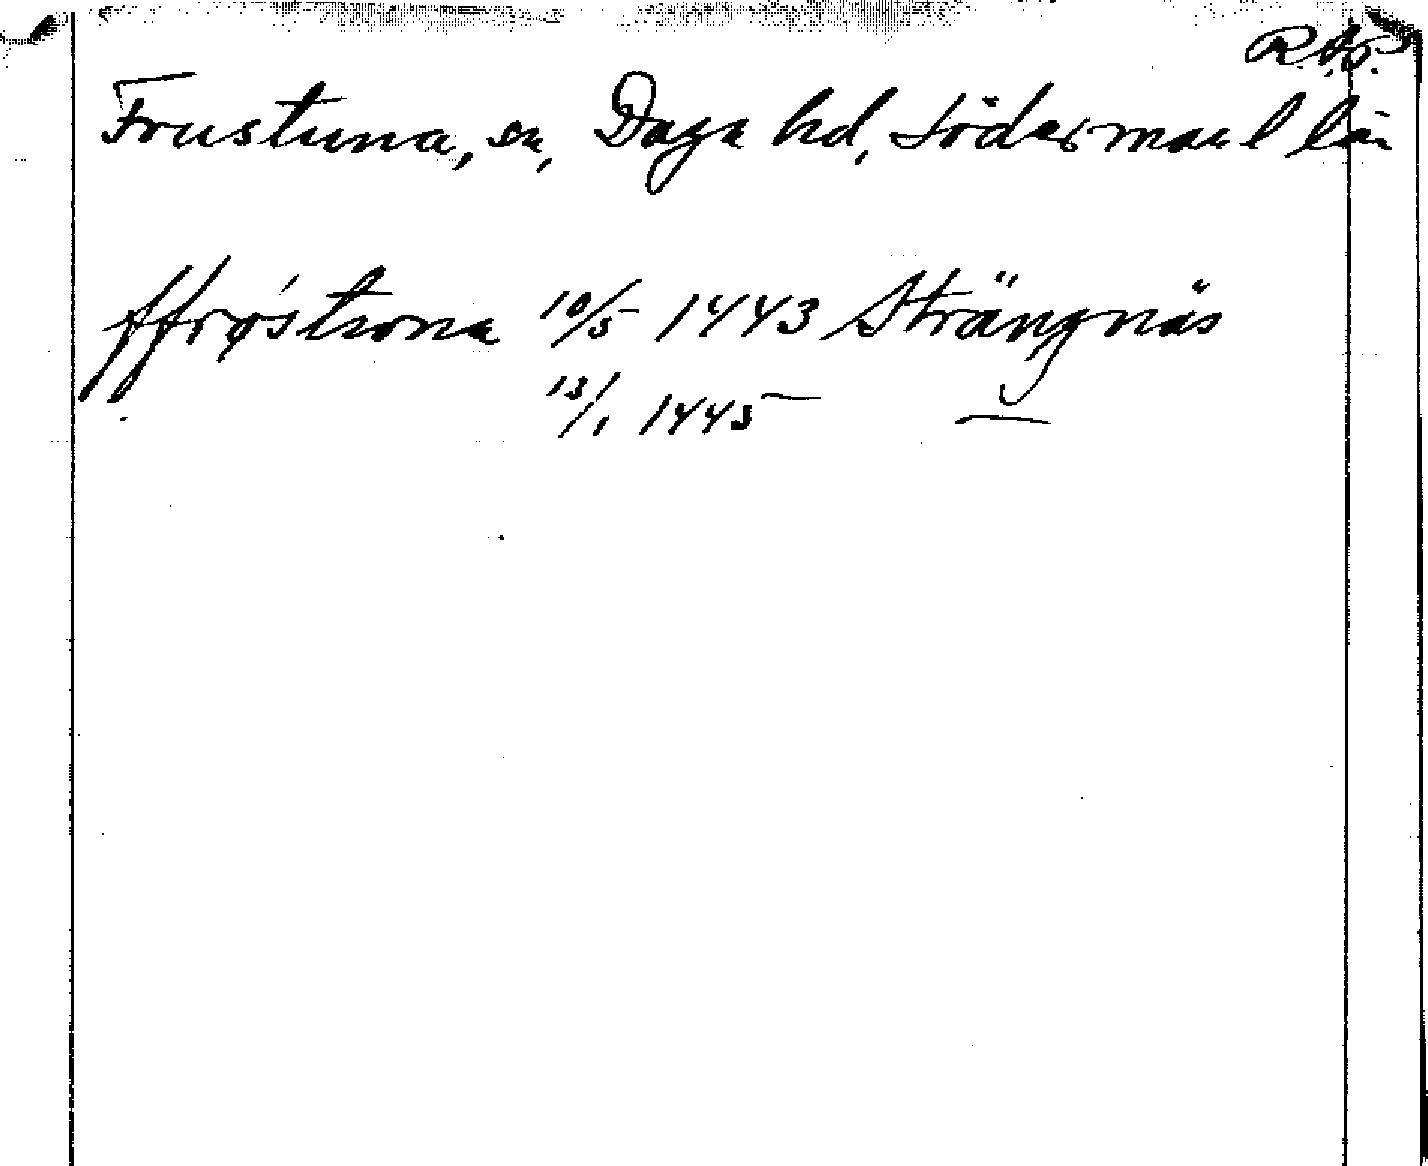 R.A.P.
Frustuna, sn, Daga hd, Södermanl län
ffrøstwna 10/5 1443 Strängnäs
13/1 1445 —